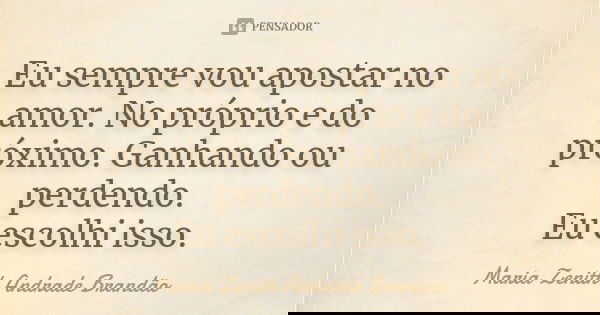 PENSADOR
Eu sempre vou apostar no
amor. No próprio e do
próximo. Ganhando ou
perdendo.
Eu escolhi isso.
Maria Zenith Andrade Brandão